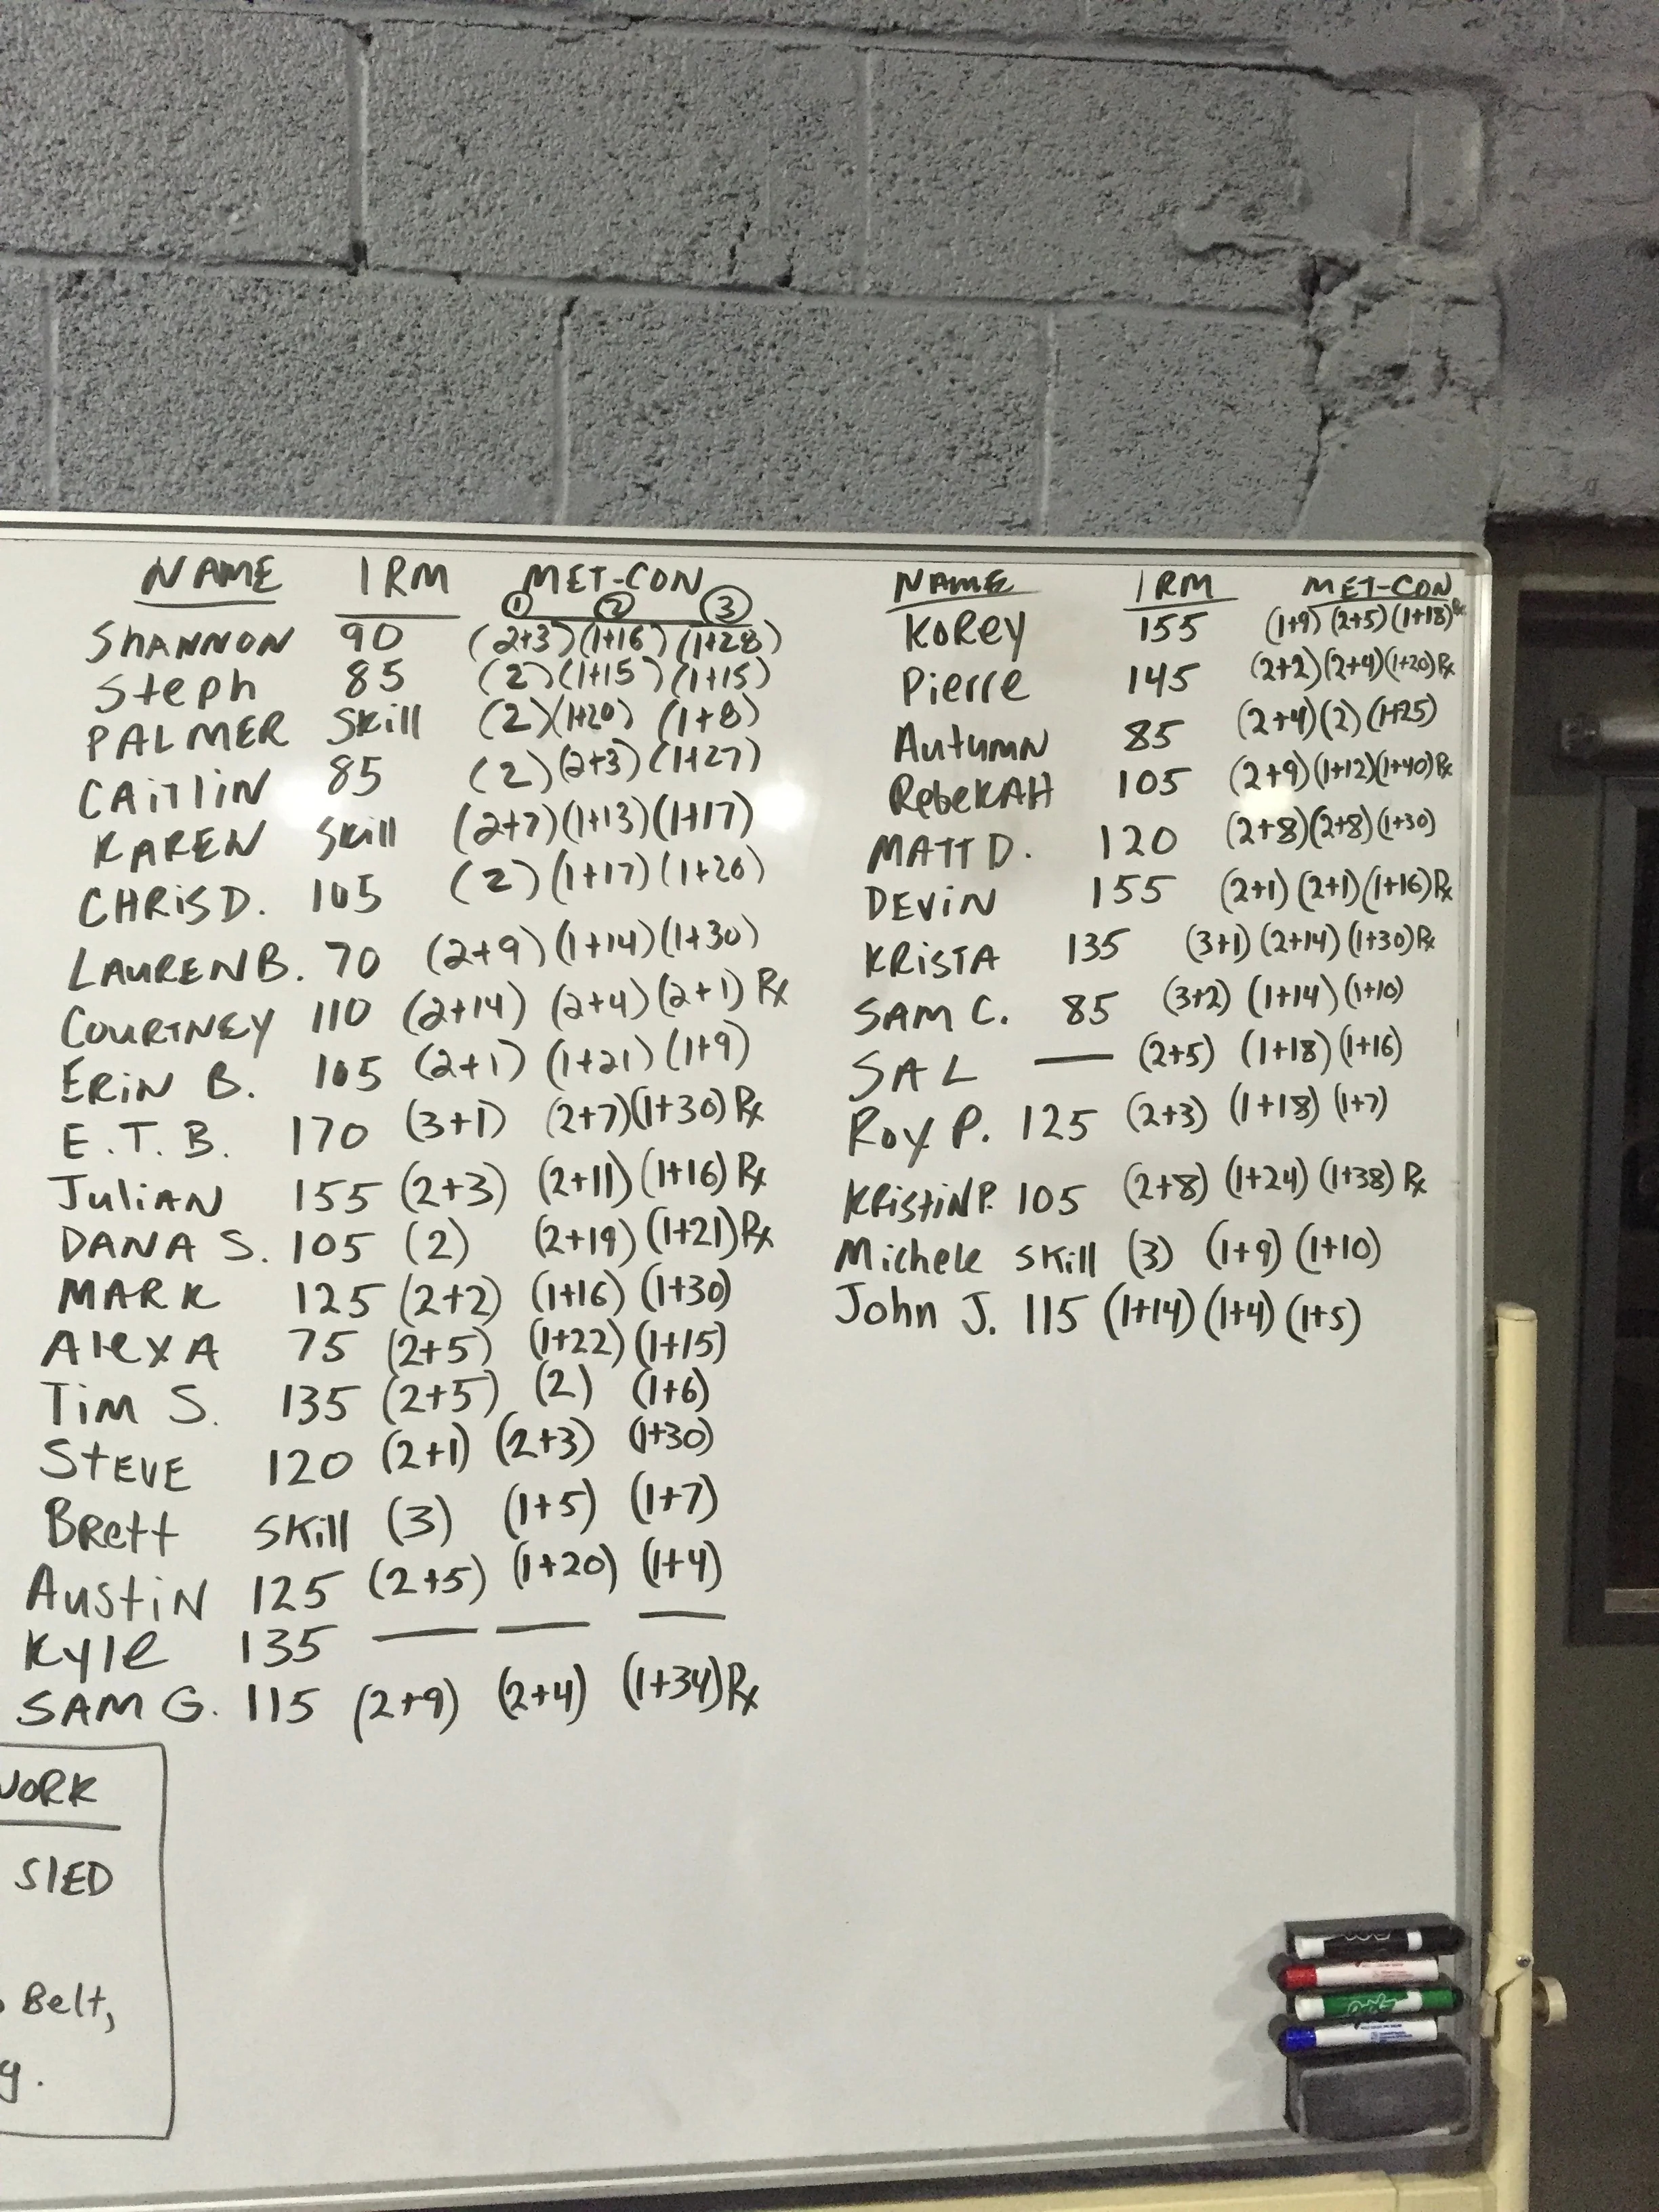 NAME 1RM MET-CON
① ② ③
SHANNON 90 (2+3) (1+16) (1+28)
Steph 85 (2) (1+15) (1+15)
PALMER Skill (2) (1+20) (1+8)
CAitliN 85 (2) (2+3) (1+27)
KAREN Skill (2+7) (1+13) (1+17)
CHRiS D. 105 (2) (1+17) (1+20)
LAUREN B. 70 (2+9) (1+14) (1+30)
COURTNEY 110 (2+14) (2+4) (2+1) Rx
ERiN B. 105 (2+1) (1+21) (1+9)
E.T.B. 170 (3+1) (2+7) (1+30) Rx
JuliAN 155 (2+3) (2+11) (1+16) Rx
DANA S. 105 (2) (2+19) (1+21) Rx
MARK 125 (2+2) (1+16) (1+30)
AlexA 75 (2+5) (1+22) (1+15)
Tim S. 135 (2+5) (2) (1+6)
STEVE 120 (2+1) (2+3) (1+30)
BRett Skill (3) (1+5) (1+7)
AustiN 125 (2+5) (1+20) (1+4)
Kyle 135 — — —
SAM G. 115 (2+9) (2+4) (1+34) Rx
WORK
SlED
Belt,
NAME 1RM MET-CON
KoRey 155 (1+9) (2+5) (1+18) Rx
Pierre 145 (2+2) (2+4) (1+20) Rx
AutumN 85 (2+4) (2) (1+25)
RebeKAH 105 (2+9) (1+12) (1+40) Rx
MATT D. 120 (2+8) (2+8) (1+30)
DEViN 155 (2+1) (2+1) (1+16) Rx
KRiSTA 135 (3+1) (2+14) (1+30) Rx
SAM C. 85 (3+2) (1+14) (1+10)
SAL — (2+5) (1+18) (1+16)
Roy P. 125 (2+3) (1+18) (1+7)
KRistiN P. 105 (2+8) (1+24) (1+38) Rx
Michele Skill (3) (1+9) (1+10)
John J. 115 (1+14) (1+4) (1+5)